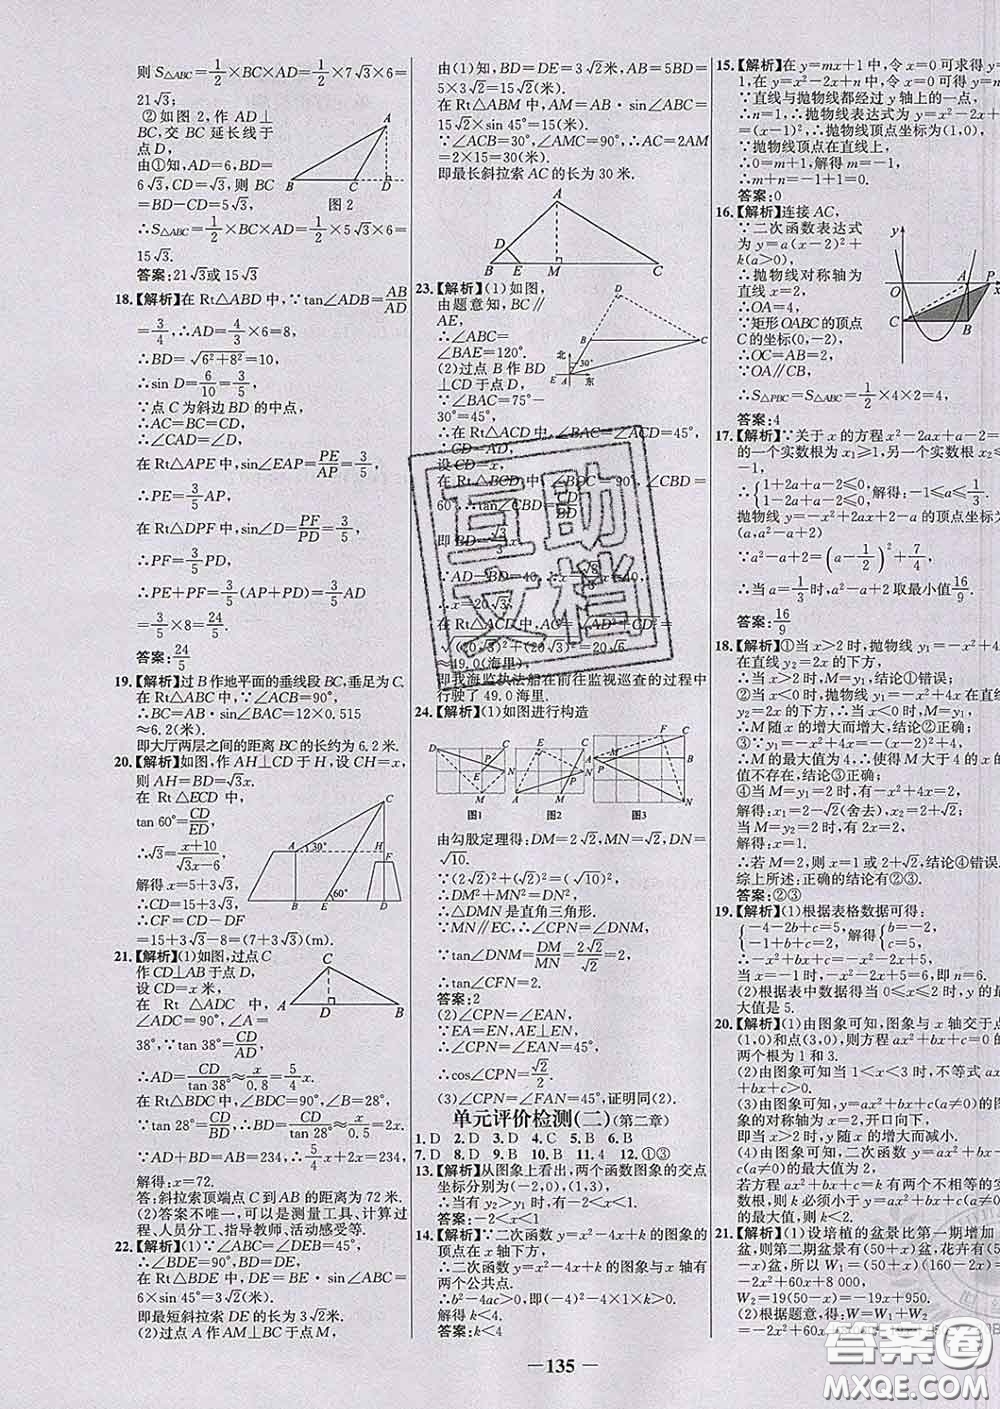 则S△ABC=1/2×BC×AD=1/2×7√3×6=
21√3;
②如图2,作AD⊥
BC,交BC延长线于
点D,
由①知,AD=6,BD=
6√3,CD=√3,则BC=
BD-CD=5√3,
图2
∴S△ABC=1/2×BC×AD=1/2×5√3×6=
15√3.
答案:21√3或15√3
18.【解析】在Rt△ABD中,∵tan∠ADB=AB/AD
=3/4,∴AD=4/3×6=8,
∴BD=√(6²+8²)=10,
∴sin D=6/10=3/5,
∵点C为斜边BD的中点,
∴AC=BC=CD,
∴∠CAD=∠D,
在Rt△APE中,sin∠EAP=PE/AP=3/5,
∴PE=3/5AP,
在Rt△DPF中,sin∠D=PF/PD=3/5,
∴PF=3/5PD,
∴PE+PF=3/5(AP+PD)=3/5AD=
3/5×8=24/5.
答案:24/5
19.【解析】过B作地平面的垂线段BC,垂足为C.
在Rt△ABC中,∵∠ACB=90°,
∴BC=AB·sin∠BAC=12×0.515
≈6.2(米).
即大厅两层之间的距离BC的长约为6.2米.
20.【解析】如图,作AH⊥CD于H,设CH=x,
则AH=BD=√3x.
在Rt△ECD中,
tan 60°=CD/ED,
∴√3=(x+10)/(√3x-6),
解得x=5+3√3,
∴CD=15+3√3,
∴CF=CD-DF
=15+3√3-8=(7+3√3)(m).
21.【解析】(1)如图,过点C
作CD⊥AB于点D,
设CD=x米,
在Rt△ADC中,
∠ADC=90°,∠A=
38°,∵tan 38°=CD/AD,
∴AD=CD/tan 38°≈x/0.8=5x/4.
在Rt△BDC中,∠BDC=90°,∠B=28°,
∵tan 28°=CD/BD,∴BD=CD/tan 28°≈x/0.5=2x.
∵AD+BD=AB=234,∴5x/4+2x=234,
解得:x=72.
答:斜拉索顶端点C到AB的距离为72米.
(2)答案不唯一,可以是测量工具、计算过
程、人员分工、指导教师、活动感受等.
22.【解析】(1)∵∠ABC=∠DEB=45°,
∴∠BDE=90°,
在Rt△BDE中,DE=BE·sin∠ABC=
6×sin 45°=3√2(米).
即最短斜拉索DE的长为3√2米.
(2)过点A作AM⊥BC于点M
由(1)知,BD=DE=3√2米,AB=5BD=
5×3√2=15√2(米).
在Rt△ABM中,AM=AB·sin∠ABC=
15√2×sin 45°=15(米).
∵∠ACB=30°,∠AMC=90°,∴AC=2AM
=2×15=30(米).
即最长斜拉索AC的长为30米.
23.【解析】(1)如图,
由题意知,BC∥
AE,
∴∠ABC=
∠BAE=120°.
(2)过点B作BD
⊥CD于点D,
∵∠BAC=75°-
30°=45°,
∴在Rt△ACD中,∠BAC=∠ACD=45°,
CD=AD,
设CD=x,
在Rt△BCD中,∠BDC=90°,∠CBD=
60°,tan∠CBD=
∵AD-BD=40,
∴x=20√3
在Rt△ACD中,AC=√(AD²+CD²)=
√((20√3)²+(20√3)²)
≈49.0(海里).
即我海监执法船在前往监视巡查的过程中
行驶了49.0海里.
24.【解析】(1)如图进行构造
图1 图2 图3
由勾股定理得:DM=2√2,MN=√2,DN=
√10.
∵(2√2)²+(√2)²=(√10)²,
∴DM²+MN²=DN²,
∴△DMN是直角三角形.
∵MN∥EC,∴∠CPN=∠DNM,
∵tan∠DNM=DM/MN=2√2/√2=2,
∴tan∠CPN=2.
答案:2
(2)∠CPN=∠EAN,
∵EA=EN,AE⊥EN,
∴∠CPN=∠EAN=45°,
∴cos∠CPN=√2/2.
(3)∠CPN=∠FAN=45°,证明同(2).
单元评价检测(二)(第二章)
1.D 2.D 3.D 4.C 5.B 6.B
7.D 8.D 9.D 10.B 11.4 12.①③
13.【解析】从图象上看出,两个函数图象的交点
坐标分别为(-2,0),(1,3),
∴当有y₂>y₁时,有-2<x<1.
答案:-2<x<1
14.【解析】∵二次函数y=x²-4x+k的图象的
顶点在x轴下方,
∴二次函数y=x²-4x+k的图象与x轴有
两个公共点.
∴b²-4ac>0,即(-4)²-4×1×k>0,
解得:k<4.
答案:k<4
15.【解析】在y=mx+1中,令x=0可求得y=
1,在y=x²-2x+n中,令x=0可得y=n,
∵直线与抛物线都经过y轴上的一点,
∴n=1,∴抛物线表达式为y=x²-2x+
=(x-1)²,∴抛物线顶点坐标为(1,0),
∵抛物线顶点在直线上,
∴0=m+1,解得m=-1,
∴m+n=-1+1=0.
答案:0
16.【解析】连接AC,
∵二次函数表达式
为y=a(x-2)²+
k(a>0),
∴抛物线对称轴为
直线x=2,
∴OA=4,
∵矩形OABC的顶点
C的坐标(0,-2),
∴OC=AB=2,
∵OA∥PC,
∴S△PBC=S△ABC=1/2×4×2=4,
答案:4
17.【解析】∵关于x的方程x²-2ax+a-2=
的一个实数根为x₁≥1,另一个实数根x₂≤
-1,
∴{1+2a+a-2≤0, 1-2a+a-2≤0, 解得:-1≤a≤1/3,
抛物线y=-x²+2ax+2-a的顶点坐标为
(a,a²-a+2)
∵a²-a+2=(a-1/2)²+7/4,
∴当a=1/3时,a²-a+2取最小值16/9.
答案:16/9
18.【解析】①当x>2时,抛物线y₁=-x²+4x
在直线y₂=2x的下方,
∴当x>2时,M=y₁,结论①错误;
②当x<0时,抛物线y₁=-x²+4x在直线
y₂=2x的下方,∴当x<0时,M=y₁,
∴M随x的增大而增大,结论②正确;
③∵y₁=-x²+4x=-(x-2)²+4,
∴M的最大值为4,∴使得M大于4的x的
值不存在,结论③正确;
④当M=y₁=2时,有-x²+4x=2,
解得:x₁=2-√2(舍去),x₂=2+√2;
当M=y₂=2时,有2x=2,
解得:x=1.
∴若M=2,则x=1或2+√2,结论④错误.
综上所述:正确的结论有②③.
答案:②③
19.【解析】(1)根据表格数据可得:
{-4-2b+c=5, -1+b+c=2, 解得{b=-2, c=5,
∴-x²+bx+c=-x²-2x+5,
当x=-1时,-x²-2x+5=6,即n=6.
(2)根据表中数据得当0≤x≤2时,y的最
大值是5.
20.【解析】(1)由图象可知,图象与x轴交于点
(1,0)和点(3,0),则方程ax²+bx+c=0的
两个根为1和3.
(2)由图象可知当1<x<3时,不等式ax²+
bx+c>0.
(3)由图象可知,y=ax²+bx+c(a≠0)的图
象的对称轴为x=2,开口向下,
即当x>2时,y随x的增大而减小.
(4)由图象可知,二次函数y=ax²+bx+
c(a≠0)的最大值为2,
若方程ax²+bx+c=k有两个不相等的实
数根,则k必须小于y=ax²+bx+c(a≠0)
的最大值,则k<2.
21.【解析】(1)设培植的盆景比第一期增加x
盆,则第二期盆景有(50+x)盆,花卉有(50-
x)盆,所以W₁=(50+x)(160-2x)=
-2x²+60x+8 000,
W₂=19(50-x)=-19x+950.
(2)根据题意,得:W=W₁+W₂
=-2x²+60x+8
互助文档
答案圈
MXQE.COM
— 135 —